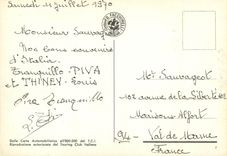 Samedi 11 Juillet 1970
Monsieur Sauvag
Nos bons souvenirs
d'Italie.
Tranquillo - PIVA
et THINEY - Louis
Piva Tranquillo
Mr Sauvageot
102 avenue de la Liberté
Maisons Alfort
94 - Val de Marne
France
Dalla Carta Automobilistica al 1:800.000 del T.C.I.
Riproduzione autorizzata dal Touring Club Italiano